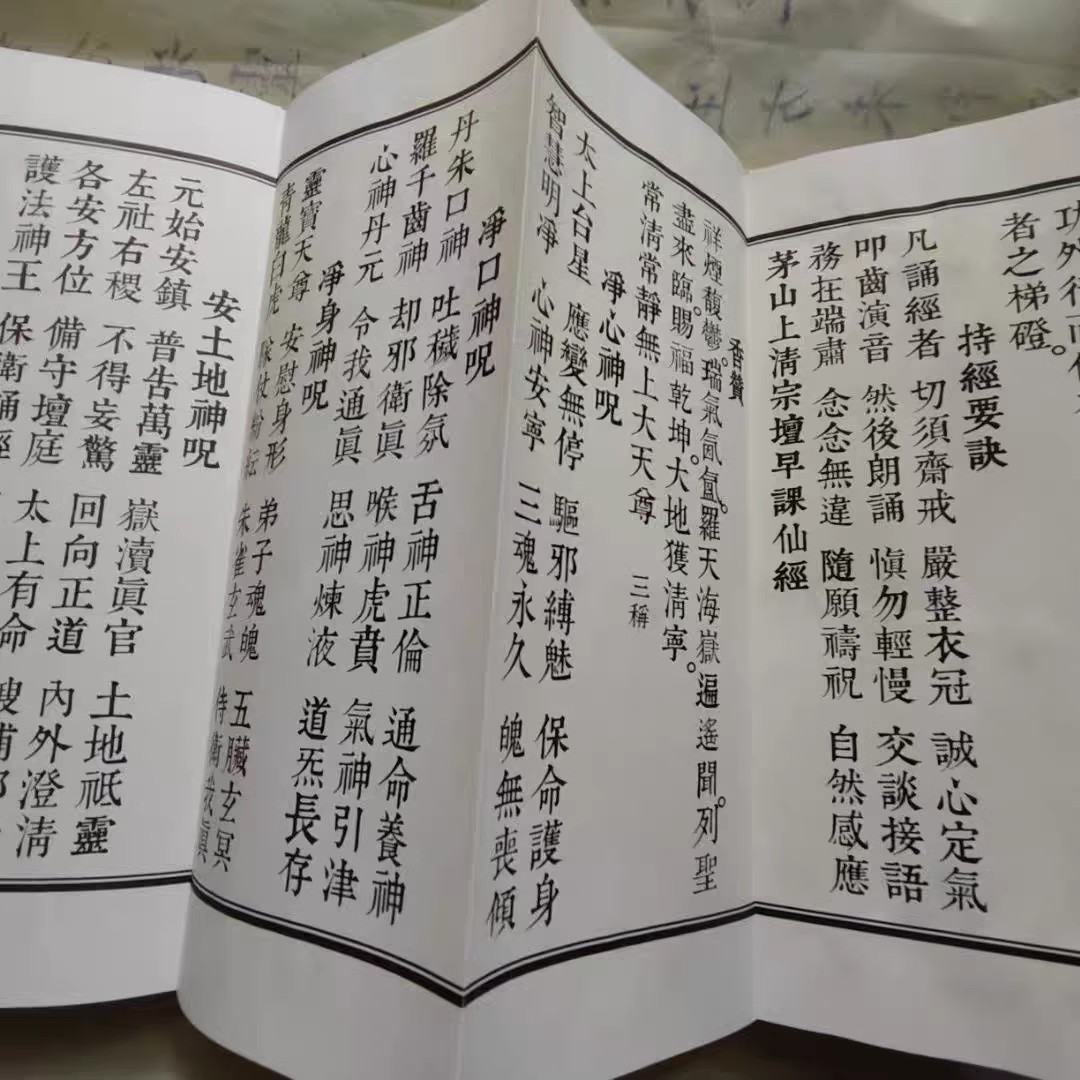 功外行
者之梯磴。
持經要訣
凡誦經者 切須齋戒 嚴整衣冠 誠心定氣
叩齒演音 然後朗誦 慎勿輕慢 交談接語
務在端肅 念念無違 隨願禱祝 自然感應
茅山上清宗壇早課仙經
香贊
祥煙馥鬱。瑞氣氤氳。羅天海嶽遍遙聞。列聖
盡來臨。賜福乾坤。大地獲清寧。
常清常靜無上大天尊 三稱
淨心神咒
太上台星 應變無停 驅邪縛魅 保命護身
智慧明淨 心神安寧 三魂永久 魄無喪傾
淨口神咒
丹朱口神 吐穢除氛 舌神正倫 通命養神
羅千齒神 却邪衛眞 喉神虎賁 氣神引津
心神丹元 令我通眞 思神煉液 道炁長存
淨身神咒
靈寶天尊 安慰身形 弟子魂魄 五臟玄冥
青龍白虎 隊仗紛紜 朱雀玄武 侍衛我眞
安土地神咒
元始安鎮 普告萬靈 嶽瀆眞官 土地祇靈
左社右稷 不得妄驚 回向正道 內外澄清
各安方位 備守壇庭 太上有命
護法神王 保衛誦經